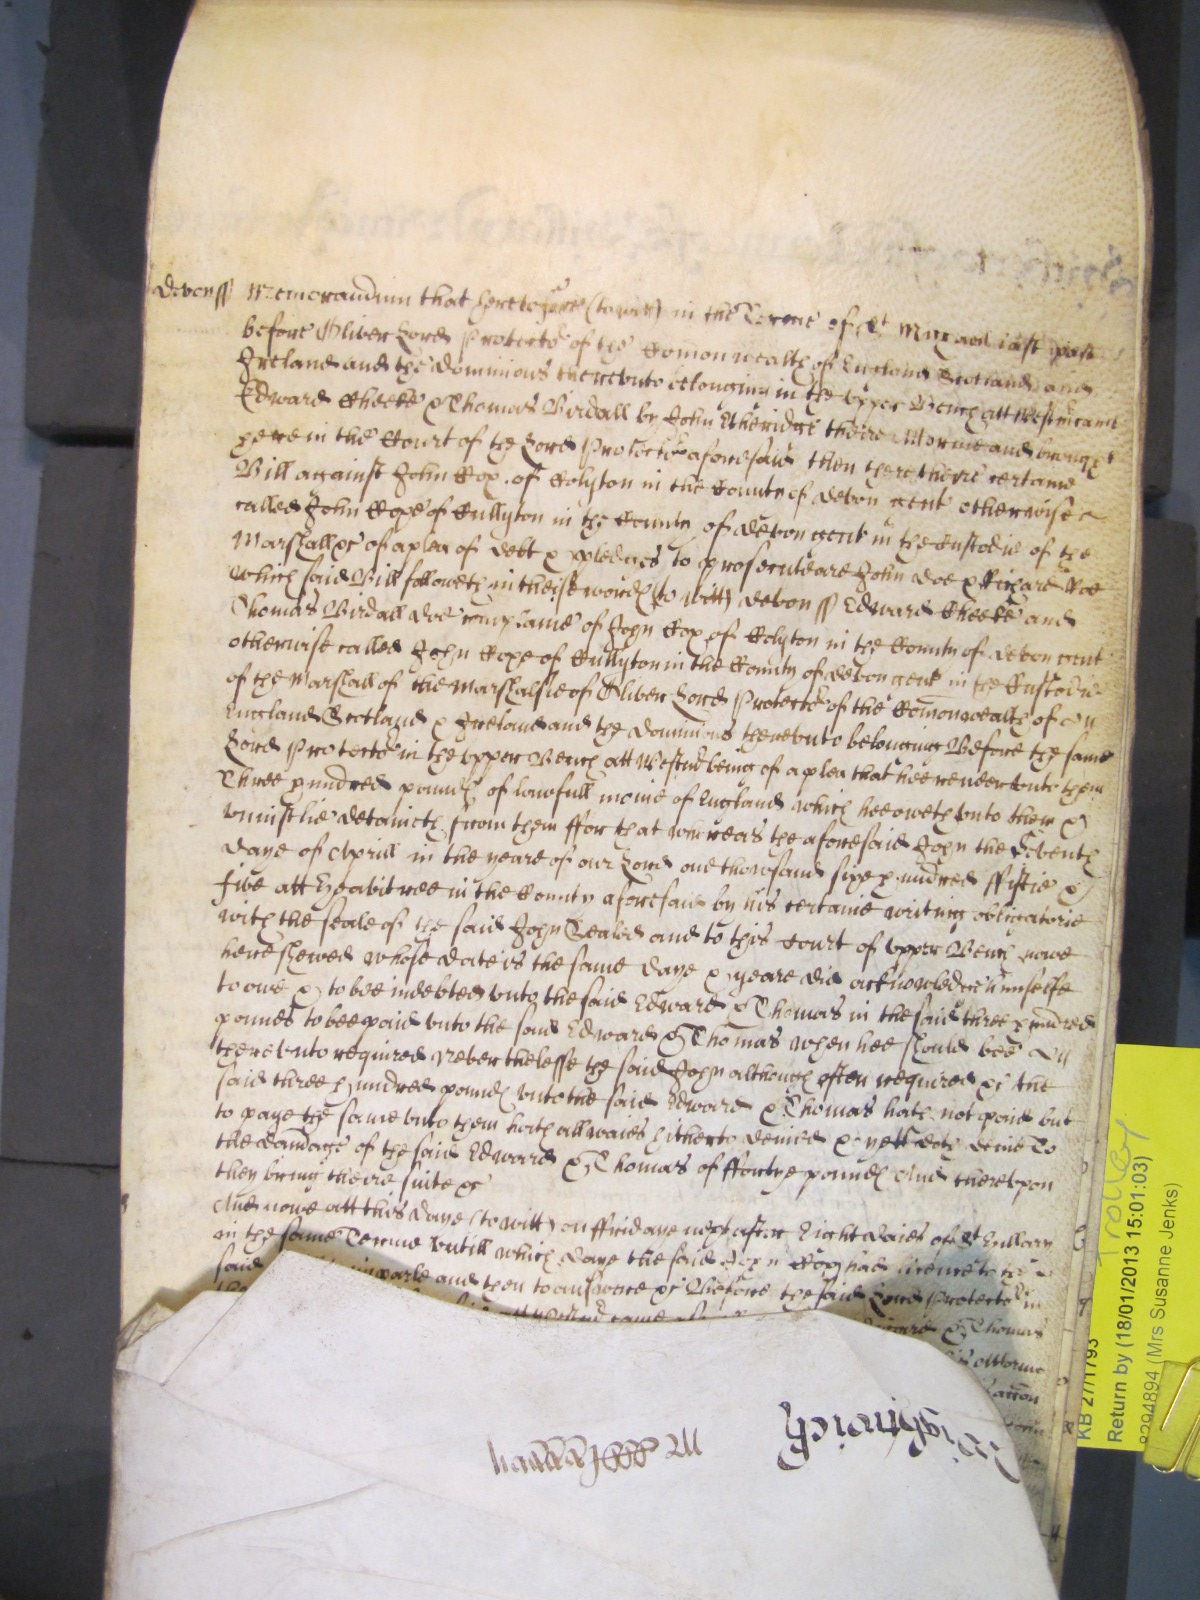 Devon ss Memorandum that heretofore (to witt) in the Terme of St Michael last past
before Oliver Lord Protector of the Comonwealth of England Scotland and
Ireland and the Dominions thereunto belonging in the upper Bench att Westm came
Edward Cheeke & Thomas Birdall by John Etheridge theire Attorney and brought
here in the Court of the Lord Protector aforesaid then there theire certaine
Bill against John Cox of Colyton in the County of Devon gent otherwise
called John Coxe of Cullyton in the County of Devon gent in the Custodie of the
Marshall &c of a plea of debt & pledges to prosecute are John Doe & Richard Roe
which said Bill followeth in theise words (to witt) Devon ss Edward Cheeke and
Thomas Birdall doe complaine of John Cox of Colyton in the County of Devon gent
otherwise called John Coxe of Cullyton in the County of Devon gent in the Custodie
of the Marshall of the Marshalsie of Oliver Lord Protector of the Comonwealth of
England Scotland & Ireland and the Dominions thereunto belonging Before the same
Lord Protector in the upper Bench att Westm being of a plea that hee render unto them
Three hundred pounds of lawfull monie of England which hee oweth unto them &
uniustlie detaineth from them ffor that whereas the aforesaid John the Seventh
daye of Aprill in the yeare of our Lord one thowsand sixe hundred ffiftie &
five att in the County aforesaid by his certaine writing obligatorie
with the seale of the said John Sealed and to this Court of upper Bench nowe
here shewed whose date is the same daye & yeare did acknowledge himselfe
to owe & to bee indebted unto the said Edward & Thomas in the said three hundred
pounds to bee paid unto the said Edward & Thomas when hee should bee
thereunto required Neverthelesse the said John although often required &c the
said three hundred pounds unto the said Edward & Thomas hath not paid but
to paye the same unto them hath allwaies hitherto denied & yett doth denie To
the damage of the said Edward & Thomas of ffortye pounds And thereupon
they bring theire suite &c
And nowe att this daye (to witt) on ffridaye next after Eight daies of St Hillary
in the same Terme untill which daye the said John Cox had licence to the
said imparle and then to answere &c Before the said Lord Protector in
att Westm came & Thomas
Attorne
Wightwick
KB 27/1793
Return by (18/01/2013 15:01:03)
8294894 (Mrs Susanne Jenks)
Trolley